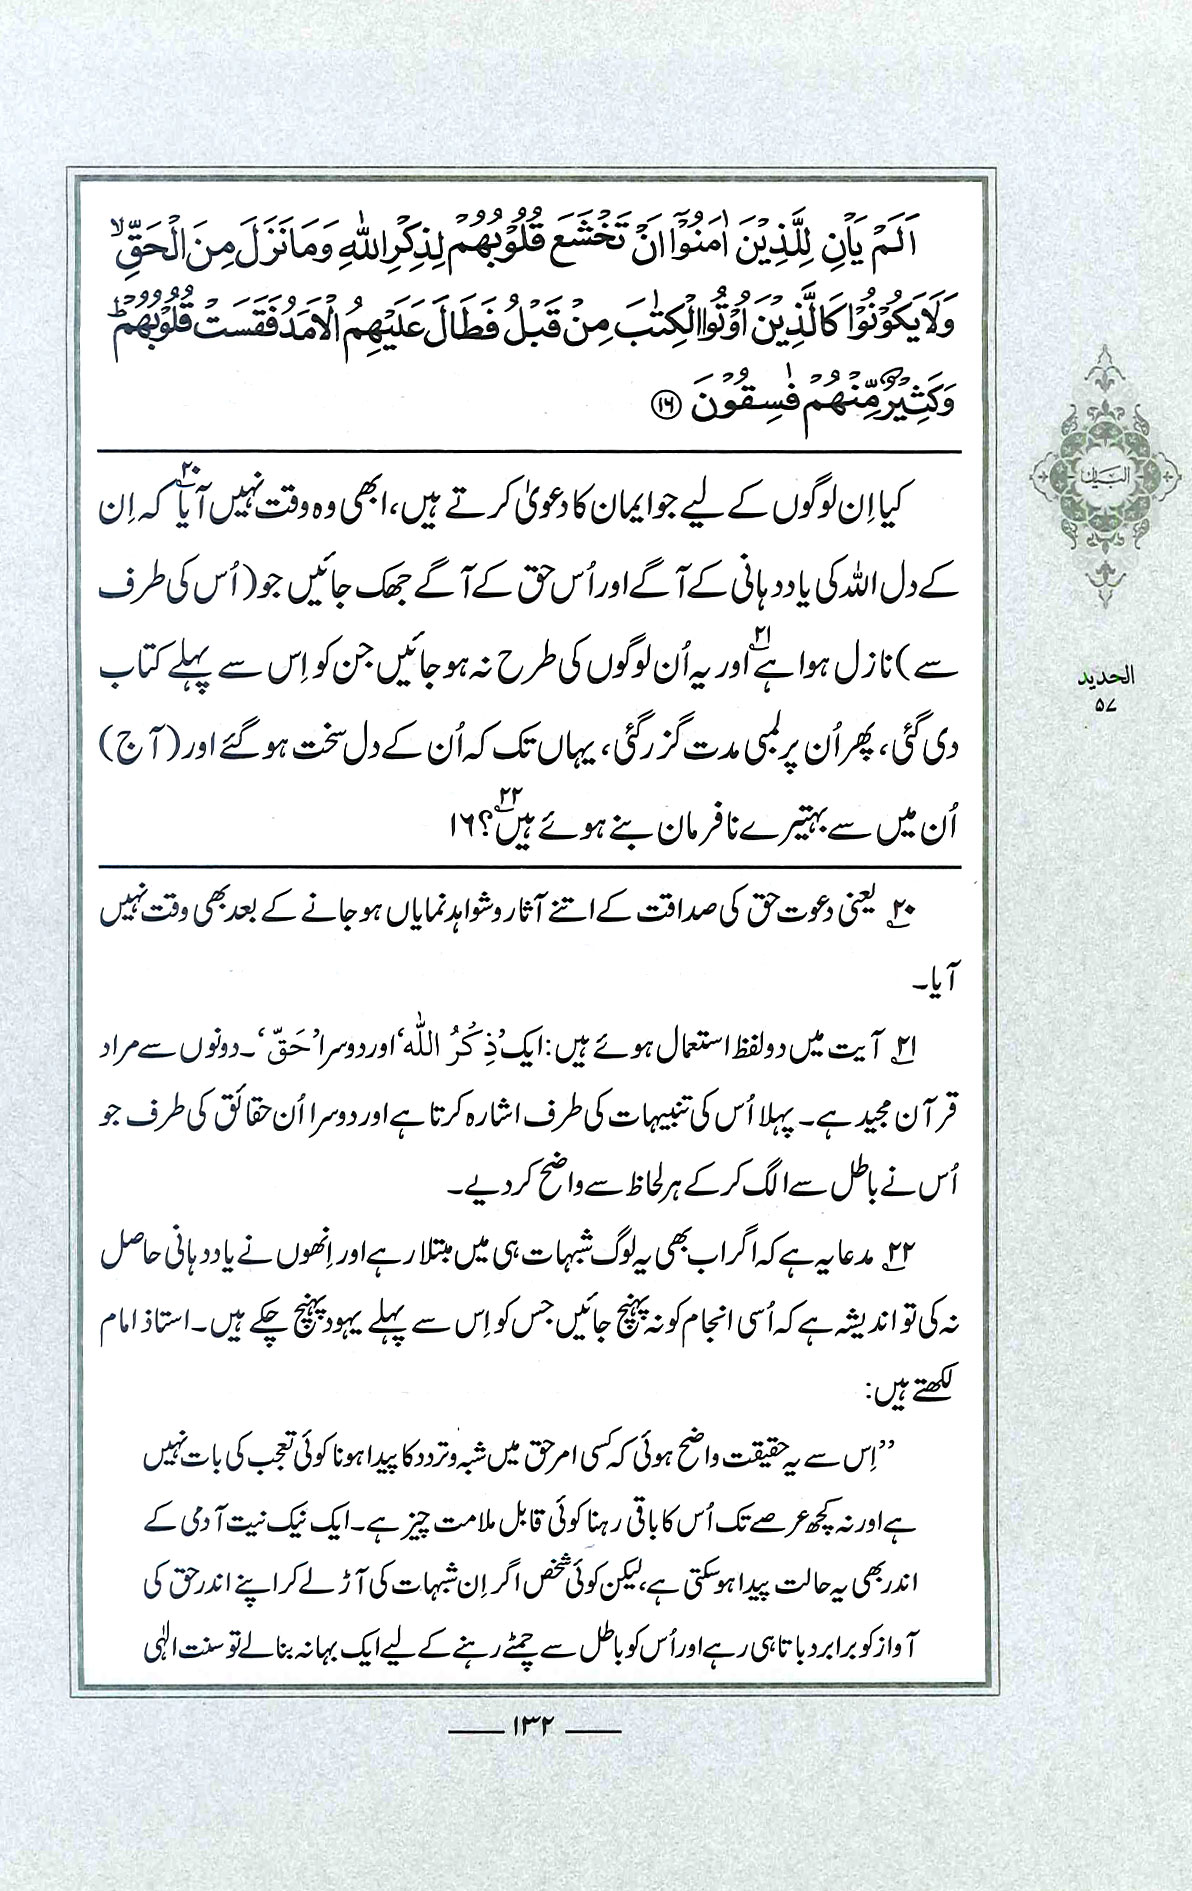 اَلَمْ یَاْنِ لِلَّذِیْنَ اٰمَنُوْۤا اَنْ تَخْشَعَ قُلُوْبُهُمْ لِذِكْرِ اللّٰهِ وَمَا نَزَلَ مِنَ الْحَقِّ ۙ
وَلَا یَكُوْنُوْا كَالَّذِیْنَ اُوْتُوا الْكِتٰبَ مِنْ قَبْلُ فَطَالَ عَلَیْهِمُ الْاَمَدُ فَقَسَتْ قُلُوْبُهُمْ ؕ
وَكَثِیْرٌ مِّنْهُمْ فٰسِقُوْنَ ﴿۱۶﴾
کیا اِن لوگوں کے لیے جو ایمان کا دعویٰ کرتے ہیں، ابھی وہ وقت نہیں آیا۲۰ کہ اِن
کے دل اللہ کی یاد دہانی کے آگے اور اُس حق کے آگے جھک جائیں جو (اُس کی طرف
سے) نازل ہوا ہے۲۱ اور یہ اُن لوگوں کی طرح نہ ہو جائیں جن کو اِس سے پہلے کتاب
دی گئی، پھر اُن پر لمبی مدت گزر گئی، یہاں تک کہ اُن کے دل سخت ہو گئے اور (آج)
اُن میں سے بہتیرے نافرمان بنے ہوئے ہیں۲۲؟ ۱۶
۲۰؎ یعنی دعوت حق کی صداقت کے اتنے آثار و شواہد نمایاں ہو جانے کے بعد بھی وقت نہیں
آیا۔
۲۱؎ آیت میں دو لفظ استعمال ہوئے ہیں: ایک ’ذِکْرُ اللّٰہ‘ اور دوسرا ’حَقّ‘۔ دونوں سے مراد
قرآن مجید ہے۔ پہلا اُس کی تنبیہات کی طرف اشارہ کرتا ہے اور دوسرا اُن حقائق کی طرف جو
اُس نے باطل سے الگ کر کے ہر لحاظ سے واضح کر دیے۔
۲۲؎ مدعا یہ ہے کہ اگر اب بھی یہ لوگ شبہات ہی میں مبتلا رہے اور اِنھوں نے یاد دہانی حاصل
نہ کی تو اندیشہ ہے کہ اُسی انجام کو نہ پہنچ جائیں جس کو اِس سے پہلے یہود پہنچ چکے ہیں۔ استاذ امام
لکھتے ہیں:
”اِس سے یہ حقیقت واضح ہوئی کہ کسی امر حق میں شبہ و تردد کا پیدا ہونا کوئی تعجب کی بات نہیں
ہے اور نہ کچھ عرصے تک اُس کا باقی رہنا کوئی قابل ملامت چیز ہے۔ ایک نیک نیت آدمی کے
اندر بھی یہ حالت پیدا ہو سکتی ہے، لیکن کوئی شخص اگر اِن شبہات کی آڑ لے کر اپنے اندر حق کی
آواز کو برابر دباتا ہی رہے اور اُس کو باطل سے چمٹے رہنے کے لیے ایک بہانہ بنا لے تو سنت الٰہی
البیان
الحدید
۵۷
۱۳۲